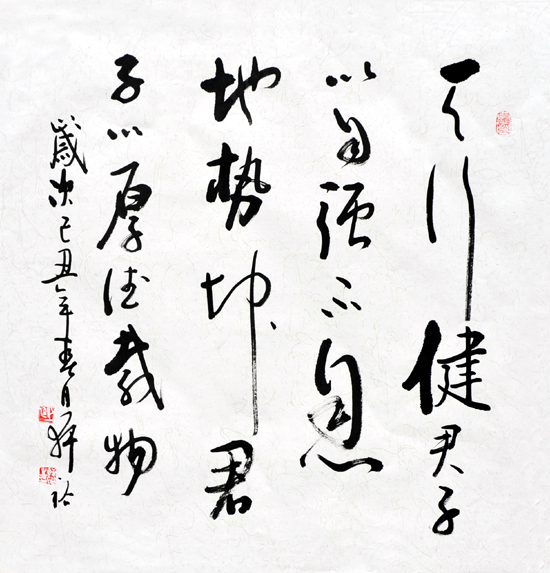 天行健君子
以自强不息
地势坤君
子以厚德载物
歲次己丑年春月